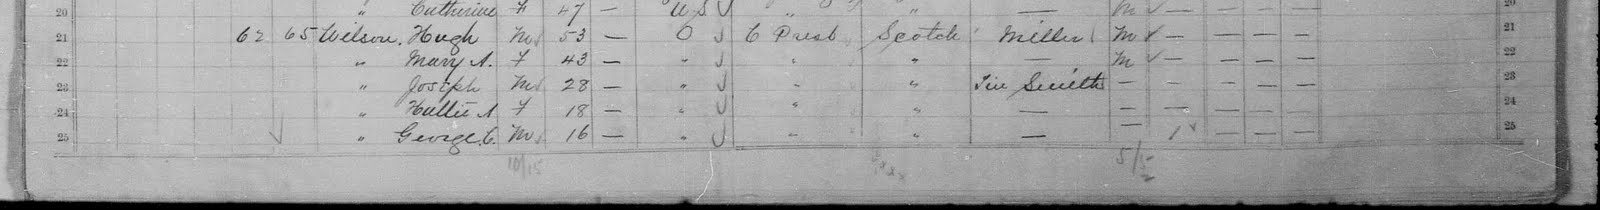 20 " Catherine F 47 — U S " " — M — 20
21 62 65 Wilson, Hugh M 53 — O C Presb Scotch Miller M — — — — 21
22 " Mary A. F 43 — " " " — M — — — — 22
23 " Joseph M 28 — " " " Tin Smith — — — — 23
24 " Hattie A F 18 — " " " — — — — — — 24
25 " George C. M 16 — " " " — — 1 — — — 25
10/15 5/5